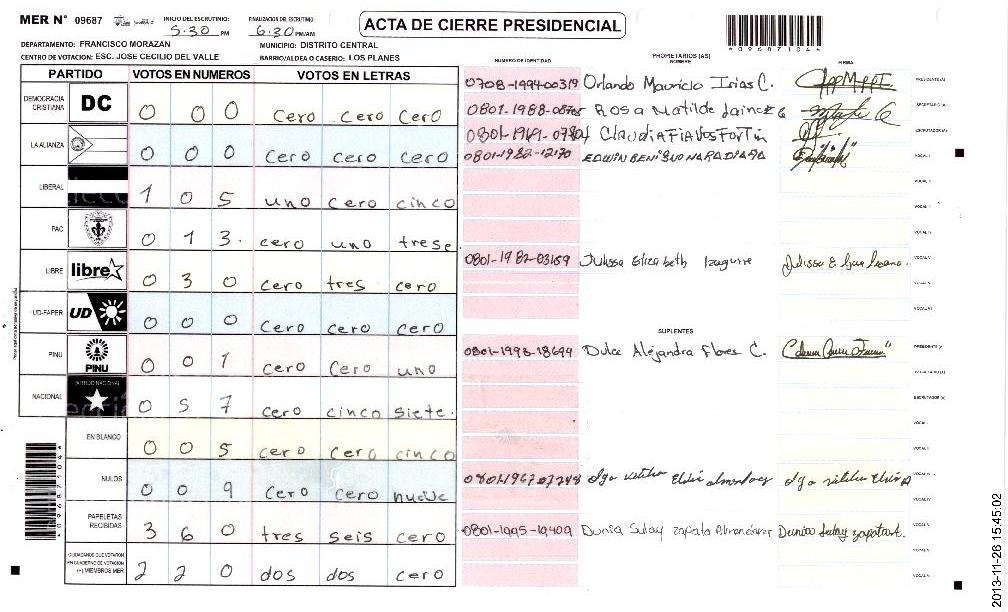 MER N° 09687
INICIO DEL ESCRUTINIO: 5:30 PM
FINALIZACION DEL ESCRUTINIO: 6:30 PM/AM
ACTA DE CIERRE PRESIDENCIAL
*09687104*
DEPARTAMENTO: FRANCISCO MORAZAN
MUNICIPIO: DISTRITO CENTRAL
CENTRO DE VOTACION: ESC. JOSE CECILIO DEL VALLE
BARRIO/ALDEA O CASERIO: LOS PLANES
PARTIDO VOTOS EN NUMEROS VOTOS EN LETRAS
DEMOCRACIA CRISTIANA DC 0 0 0 cero cero cero
LA ALIANZA 0 0 0 cero cero cero
LIBERAL 1 0 5 uno cero cinco
PAC 0 13. cero uno trese.
LIBRE libre 0 3 0 cero tres cero
UD-FAPER UD 0 0 0 cero cero cero
PINU PINU 0 0 1 cero cero uno
NACIONAL PARTIDO NACIONAL 0 5 7 cero cinco siete.
EN BLANCO 0 0 5 cero cero cinco
NULOS 0 0 9 cero cero nueve
PAPELETAS RECIBIDAS 3 6 0 tres seis cero
CIUDADANOS QUE VOTARON EN CUADERNO DE VOTACION (+) MIEMBROS MER 2 2 0 dos dos cero
NUMERO DE IDENTIDAD PROPIETARIOS (AS) NOMBRE FIRMA
0708-1994-00319 Orlando Mauricio Irias C. PRESIDENTE (A)
Rosa Matilde Lainez G SECRETARIO (A)
Claudia ESCRUTADOR (A)
0801-1982-12170 EDWIN VOCAL I
VOCAL II
VOCAL III
VOCAL IV
0801-1982-03159 Julissa Elizabeth Izaguirre VOCAL V
SUPLENTES
0801-1993-18699 Dulce Alejandra Flores C. PRESIDENTE (A)
SECRETARIO (A)
ESCRUTADOR (A)
VOCAL I
VOCAL II
VOCAL III
VOCAL IV
Dunia Sulay zapata VOCAL V
*09687104*
2013-11-26 15:45:02